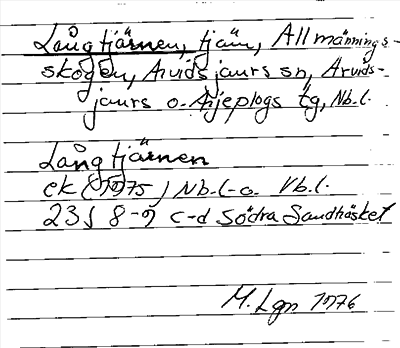 Långtjärnen, tjärn, Allmännings-
skogen, Arvidsjaurs sn, Arvids-
jaurs o. Arjeplogs tg, Nb.l.
Långtjärnen
ek (1975) Nb.l-o. Vb.l.
23J 8-9 c-d Södra Sandträsket
M. Lgn 1976